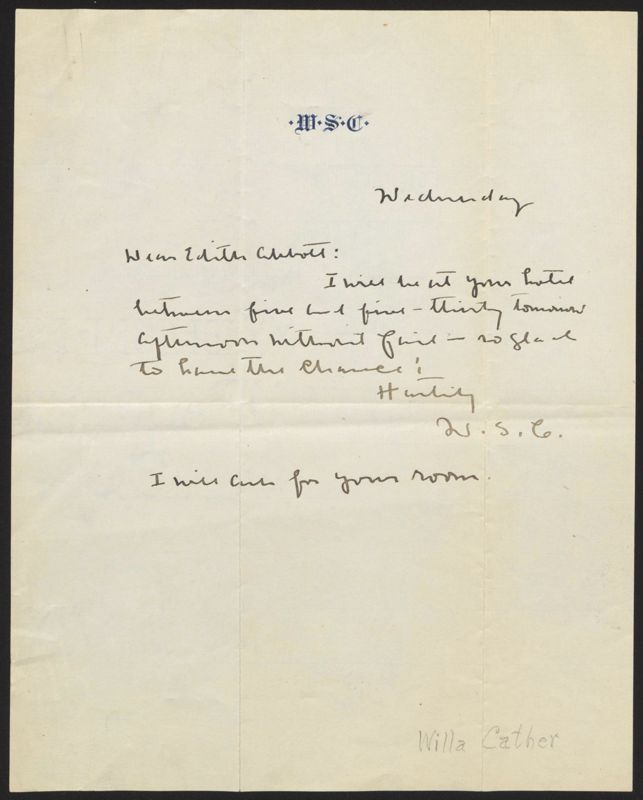 ·W·S·C·
Wednesday
Dear Edith Abbott:
I will be at your hotel
between five and five-thirty tomorrow
afternoon without fail — so glad
to have the chance!
Hastily
W. S. C.
I will ask for your room.
Willa Cather